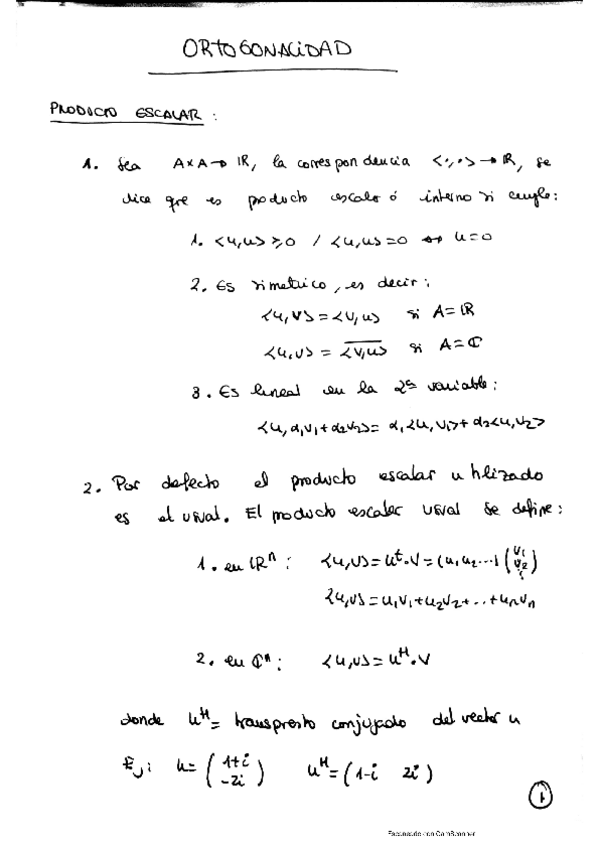 ORTOGONALIDAD
PRODUCTO ESCALAR :
1. Sea A×A→ℝ, la correspondencia <·,·>→ℝ, se
dice que es producto escalar ó interno si cumple:
1. <u,u> ≥ 0 / <u,u>=0 ⇔ u=0
2. Es simetrico, es decir:
<u,v> = <v,u> si A=ℝ
<u,v> = \overline{<v,u>} si A=ℂ
3. Es lineal en la 2ª variable:
<u, α₁v₁+α₂v₂> = α₁<u,v₁>+α₂<u,v₂>
2. Por defecto el producto escalar utilizado
es el usual. El producto escalar usual se define:
1. en ℝⁿ: <u,v> = uᵗ·v = (u₁ u₂ ...) (v₁ v₂ ⋮)
<u,v> = u₁v₁+u₂v₂+...+uₙvₙ
2. en ℂⁿ: <u,v> = uᴴ·v
donde uᴴ = transpuesto conjugado del vector u
Ej: u = (1+i -2i) uᴴ = (1-i 2i)
1
Escaneado con CamScanner